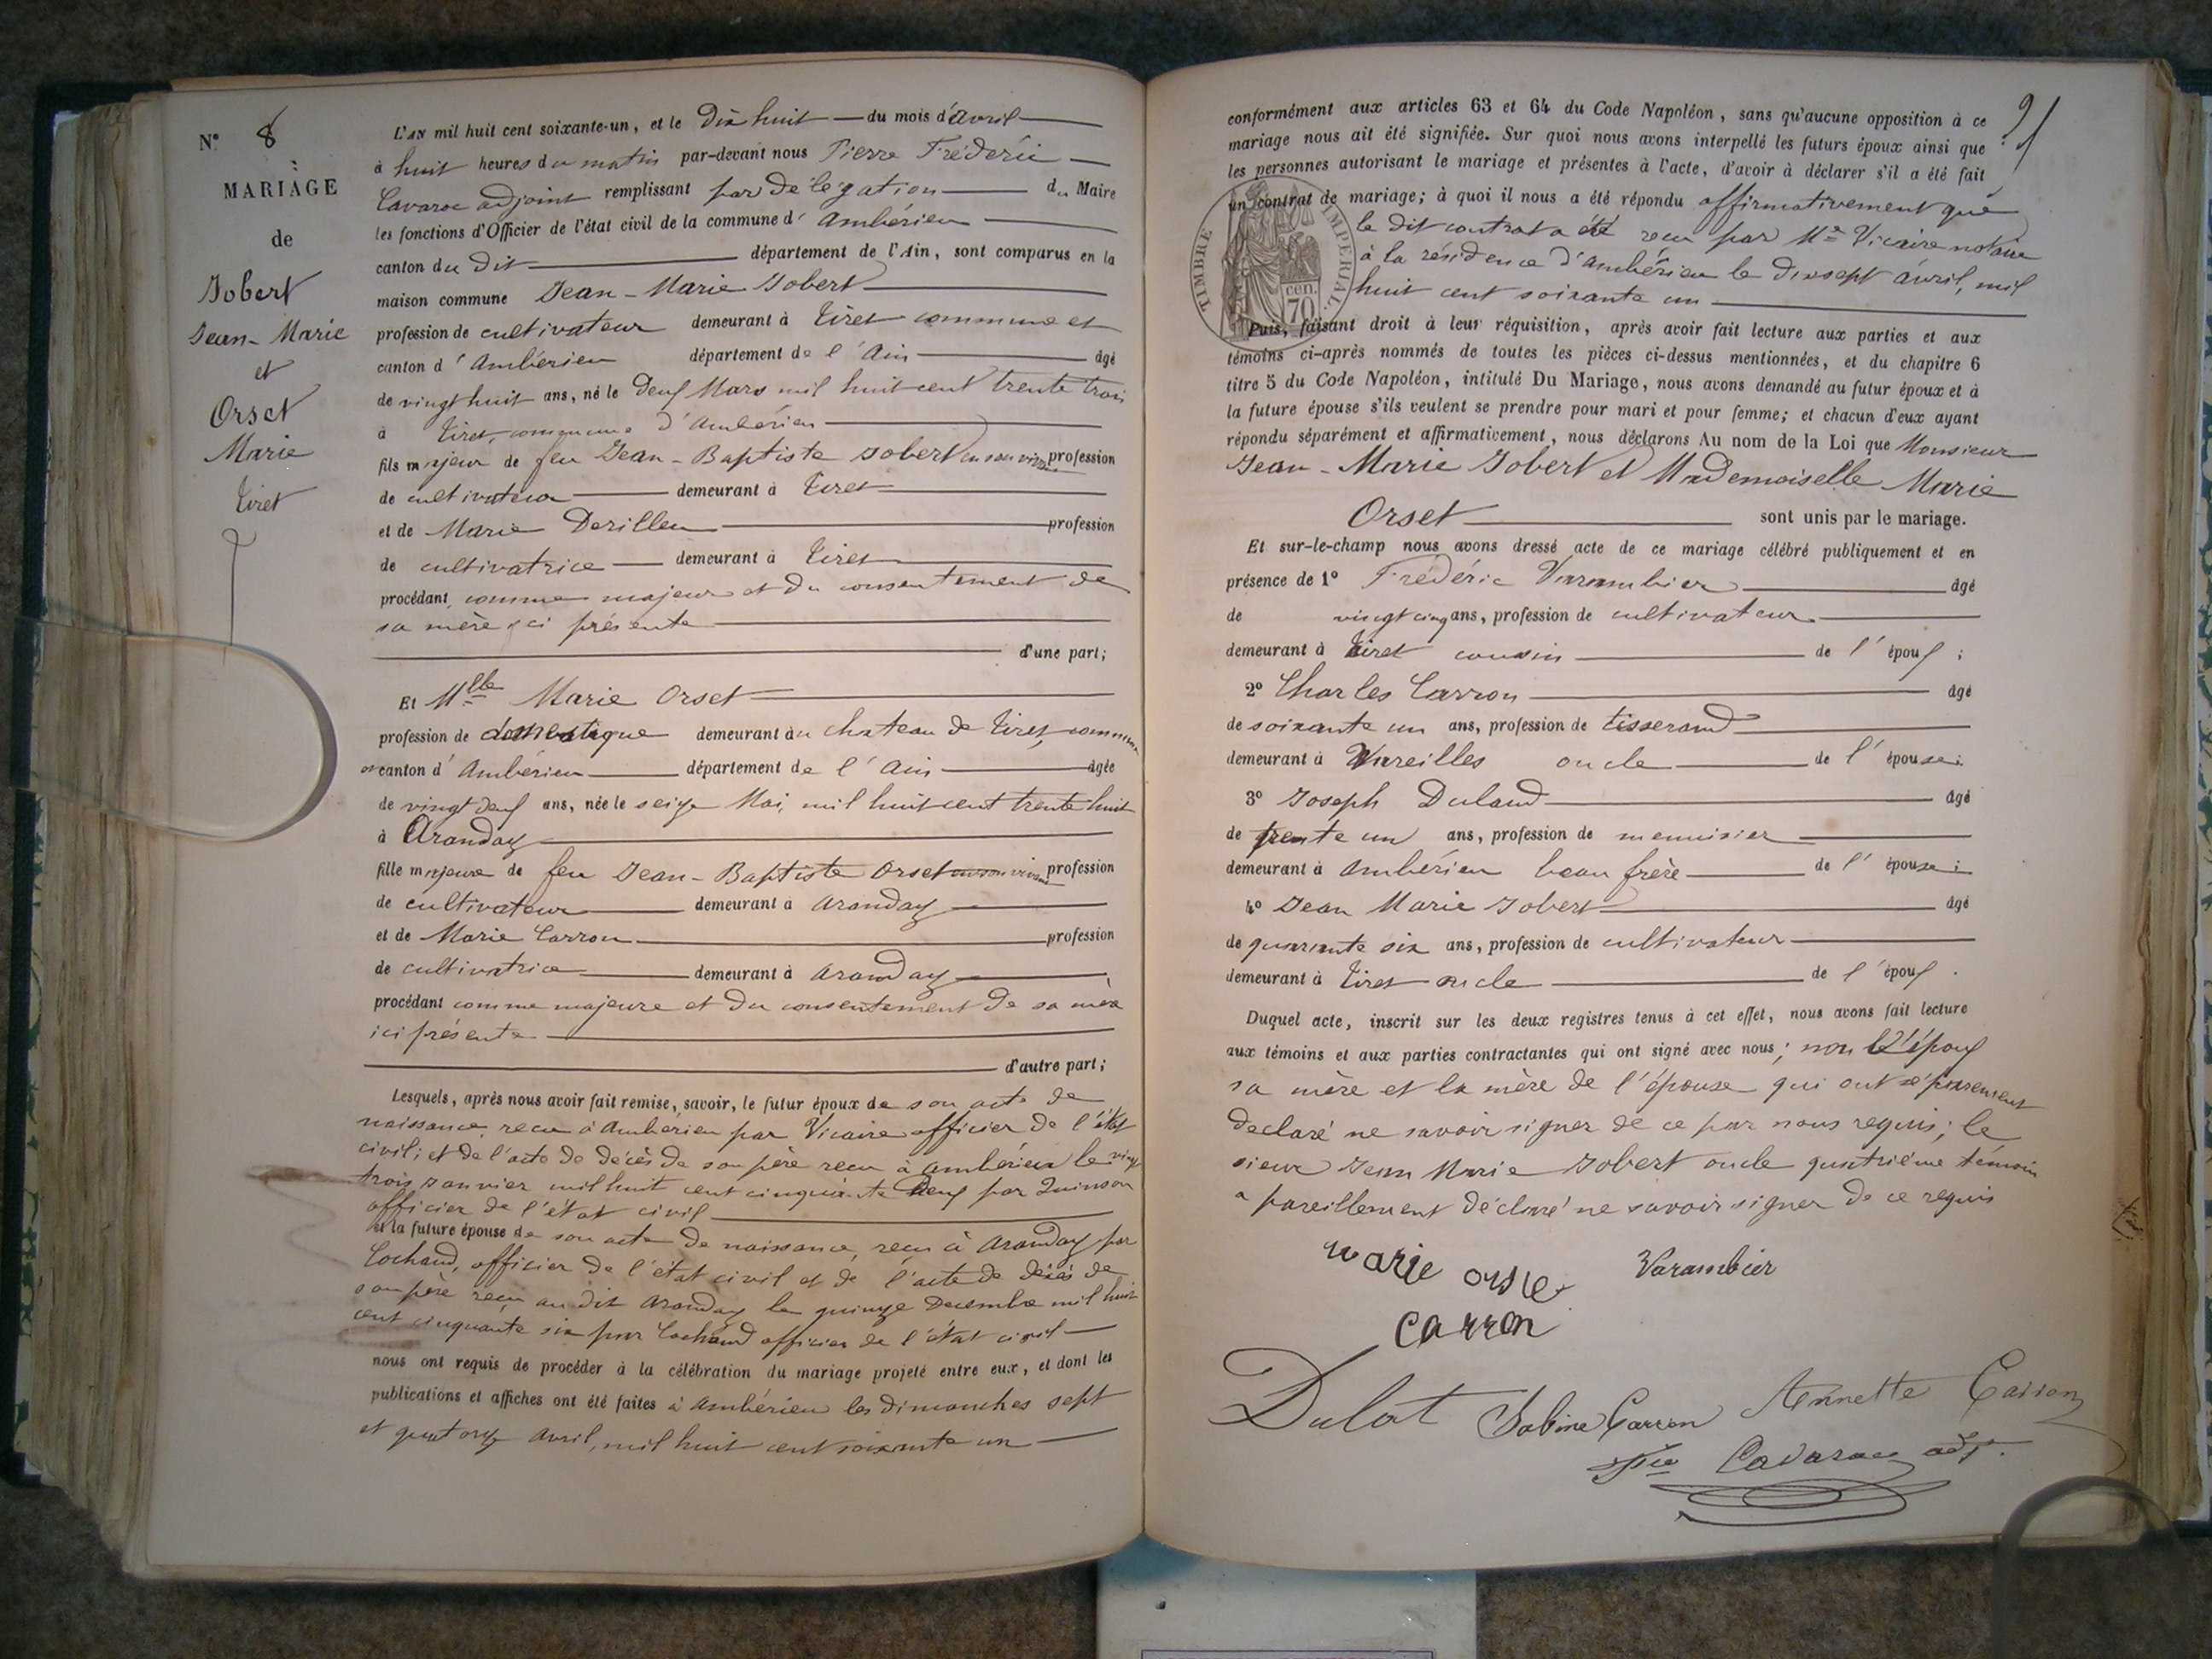 N° 8
MARIAGE
de
Jobert
Jean-Marie
et
Orset
Marie
Tiret
L'AN mil huit cent soixante-un, et le Dix huit du mois d'avril
à huit heures du matin par-devant nous Pierre Frédéric
Cavaroc adjoint remplissant par délégation du Maire
les fonctions d'Officier de l'état civil de la commune d'Ambérieu
canton du dit département de l'Ain, sont comparus en la
maison commune Jean-Marie Jobert
profession de cultivateur demeurant à Tiret commune et
canton d'Ambérieu département de l'Ain âgé
de vingt huit ans, né le Deux Mars mil huit cent trente trois
à Tiret, commune d'Ambérieu
fils majeur de feu Jean-Baptiste Jobert en son vivant profession
de cultivateur demeurant à Tiret
et de Marie Derilleu profession
de cultivatrice demeurant à Tiret
procédant comme majeur et du consentement de
sa mère ici présente
d'une part;
Et Mlle Marie Orset
profession de domestique demeurant au chateau de Tiret, commune
et canton d'Ambérieu département de l'Ain âgée
de vingt deux ans, née le seize Mai, mil huit cent trente huit
à Aranday
fille majeure de feu Jean-Baptiste Orset en son vivant profession
de cultivateur demeurant à Aranday
et de Marie Carron profession
de cultivatrice demeurant à Aranday
procédant comme majeure et du consentement de sa mère
ici présente
d'autre part;
Lesquels, après nous avoir fait remise, savoir, le futur époux de son acte de
naissance, recu à Ambérieu par Vicaire officier de l'état
civil; et de l'acte de décès de son père recu à Ambérieu le vingt
trois Janvier mil huit cent cinquante Deux par Quinson
officier de l'état civil
et la future épouse de son acte de naissance, recu à Aranday par
Cochaud, officier de l'état civil et de l'acte de décès de
son père recu au dit Aranday le quinze Décembre mil huit
cent cinquante six par Cochaud officier de l'état civil
nous ont requis de procéder à la célébration du mariage projeté entre eux, et dont les
publications et affiches ont été faites à Ambérieu les dimanches sept
et quatorze Avril, mil huit cent soixante un
91
conformément aux articles 63 et 64 du Code Napoléon, sans qu'aucune opposition à ce
mariage nous ait été signifiée. Sur quoi nous avons interpellé les futurs époux ainsi que
les personnes autorisant le mariage et présentes à l'acte, d'avoir à déclarer s'il a été fait
un contrat de mariage; à quoi il nous a été répondu affirmativement que
le dit contrat a été recu par Me Vicaire notaire
à la résidence d'Ambérieu le dix sept avril, mil
huit cent soixante un
TIMBRE IMPERIAL
70 cen.
Puis, faisant droit à leur réquisition, après avoir fait lecture aux parties et aux
témoins ci-après nommés de toutes les pièces ci-dessus mentionnées, et du chapitre 6
titre 5 du Code Napoléon, intitulé Du Mariage, nous avons demandé au futur époux et à
la future épouse s'ils veulent se prendre pour mari et pour femme; et chacun d'eux ayant
répondu séparément et affirmativement, nous déclarons Au nom de la Loi que Monsieur
Jean-Marie Jobert et Mademoiselle Marie
Orset sont unis par le mariage.
Et sur-le-champ nous avons dressé acte de ce mariage célébré publiquement et en
présence de 1° Frédéric Varambier âgé
de vingt cinq ans, profession de cultivateur
demeurant à Tiret cousin de l'époux;
2° Charles Carron âgé
de soixante un ans, profession de tisserand
demeurant à Vareilles oncle de l'épouse;
3° Joseph Dulaud âgé
de trente un ans, profession de menuisier
demeurant à Ambérieu beau frère de l'épouse;
4° Jean Marie Jobert âgé
de quarante six ans, profession de cultivateur
demeurant à Tiret oncle de l'époux.
Duquel acte, inscrit sur les deux registres tenus à cet effet, nous avons fait lecture
aux témoins et aux parties contractantes qui ont signé avec nous; non l'époux
sa mère et la mère de l'épouse qui ont séparement
declaré ne savoir signer de ce par nous requis; le
sieur Jean Marie Jobert oncle quatrième témoin
a pareillement déclaré ne savoir signer de ce requis
Marie Orset Varambier
Carron
Dulat Sabine Carron Annette Carron
Cavaroc adj.